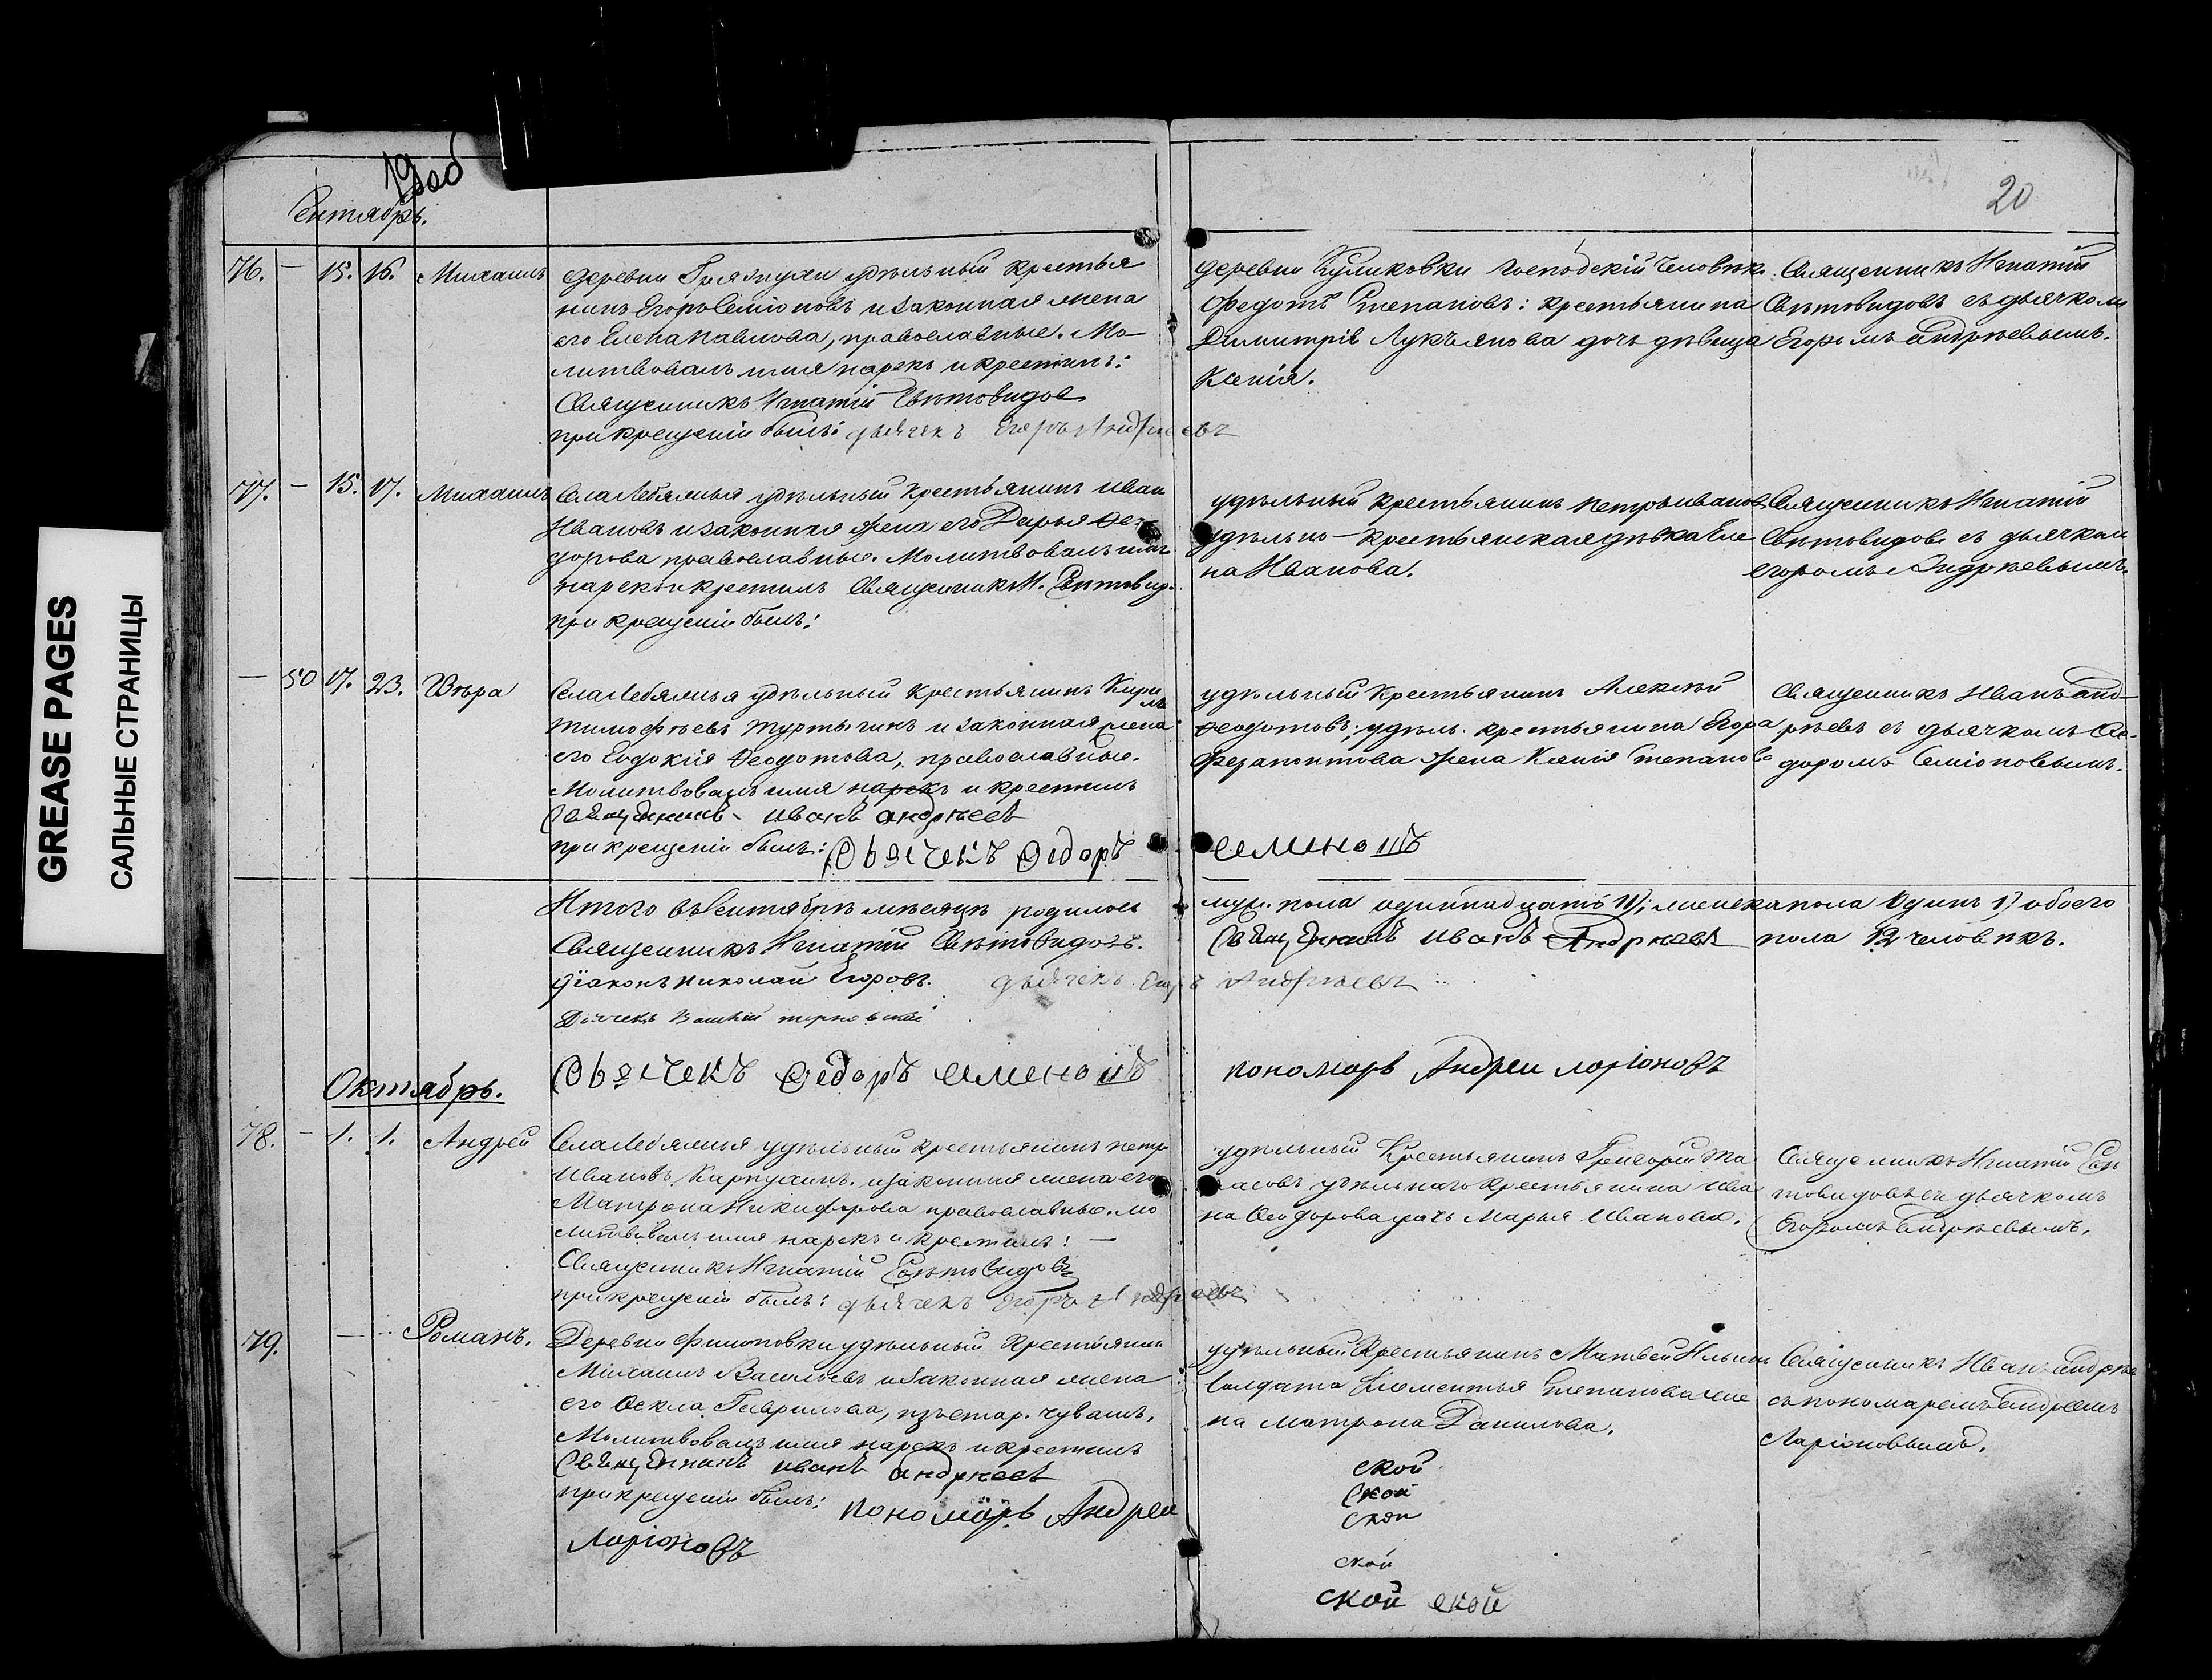 GREASE PAGES
САЛЬНЫЕ СТРАНИЦЫ
19об
20
Сентябрь.
76. — 15. 16. Михаилъ
деревни Грязнухи удѣльный крестья
нинъ Егоръ Семіоновъ и законная жена
его Елена Павлова, православные. Мо-
литвовалъ имя нарекъ и крестилъ:
Священникъ Игнатій Свѣтовидов
при крещеніи былъ: дьячекъ Егоръ Андреевъ
деревни Куликовки Господскій человѣкъ
Федотъ Степановъ: крестьянина
Димитрія Лукъянова дочь дѣвица
Ксенія.
Священникъ Игнатій
Свѣтовидовъ съ дьячкомъ
Егоромъ Андрѣевымъ.
77. — 15. 17. Михаилъ
Села Лебяжья удѣльный крестьянинъ Иван
Ивановъ и законная жена его Дарья Ѳе-
дорова православные. Молитвовалъ имя
нарекъ и крестилъ Священникъ И. Свѣтовид.
при крещеніи былъ:
удѣльный крестьянинъ Петръ Иванов
удѣльно-крестьянская дѣвка Еле
на Иванова.
Священникъ Игнатій
Свѣтовидовъ съ дьячком
Егоромъ Андрѣевымъ.
— 50 17. 23. Вѣра
Села Лебяжья удѣльный крестьянинъ Кирил
Тимофѣевъ Туртыгинъ и законная жена
его Евдокія Ѳеодотова, православные.
Молитвовалъ имя нарекъ и крестилъ
Священникъ иванъ андрѣевъ
при крещеніи былъ: Дьячекъ Ѳедоръ
семеновъ
удѣльный крестьянинъ Алексѣй
Ѳеодотовъ; удѣль. крестьянина Егора
Ферапонтова жена Ксенія Степанов
Священникъ Иванъ Анд-
рѣевъ съ дьячкомъ Ѳе-
доромъ Семіоновымъ.
Итого въ Сентябрѣ мѣсяцѣ родилось
муж. пола одиннадцать 11; женска пола Одинъ 1, обоего
пола 12 человѣкъ.
Священникъ Игнатій Свѣтовидовъ.
Священникъ иванъ Андрѣевъ
Діаконъ Николай Егоровъ.
дьячекъ Егоръ Андреевъ
Дьячекъ
Дьячекъ Ѳедоръ семеновъ
пономарь Андреи ларіоновъ
Октябрь.
78. — 1. 1. Андрей
Села Лебяжья удѣльный крестьянинъ Петр
Ивановъ Карпухинъ. и законная жена его
Матрона Никифорова православные. Мо
литвовалъ имя нарекъ и крестилъ: —
Священникъ Игнатій Свѣтовидовъ
при крещеніи былъ: дьячекъ Егоръ Андреевъ
удѣльный Крестьянинъ Григорій Та
расовъ удѣльнаго крестьянина Ива
на Ѳеодорова дочь Марья Иванова.
Священникъ Игнатій Свѣ
товидовъ съ дьячкомъ
Егоромъ Андрѣевымъ.
79. — Романъ.
Деревни Филиповки удѣльный Крестіянин
Михаилъ Васильевъ и законная жена
его Ѳекла Гаврилова, изъ стар. чувашъ,
Молитвовалъ имя нарекъ и крестилъ
Священникъ иванъ андрѣевъ
при крещеніи былъ: пономарь Андреи
Ларіоновъ
удѣльный Крестьянинъ Матвей Ильинъ
Солдата Клементья Степанова же
на Матрона Данилова.
Священникъ Иванъ Андрѣе
съ пономаремъ Андреемъ
Ларіоновымъ.
ской
ской
ской
ской
ской ской